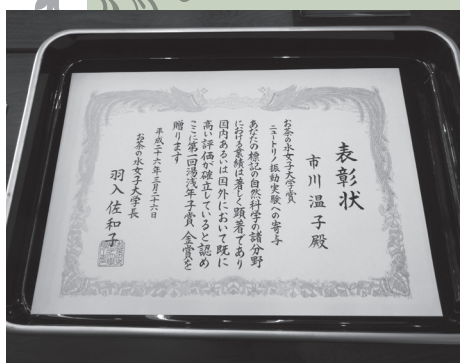 表彰状
市川温子殿
お茶の水女子大学賞
ニュートリノ振動実験への寄与
あなたの標記の自然科学の諸分野
における業績は著しく顕著であり
国内あるいは国外において既に
高い評価が確立していると認め
ここに第一回湯浅年子賞金賞を
贈ります
平成二十六年三月二十六日
お茶の水女子大学長
羽入佐和子